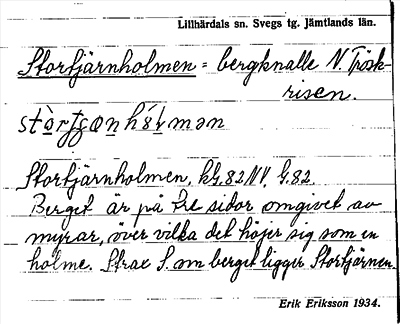 Lillhärdals sn. Svegs tg. Jämtlands län.
Stortjärnholmen = bergknalle N. Trösk-
risen.
Stortjärnholmen, kG.82NV, G.82.
Berget är på tre sidor omgivet av
myrar, över vilka det höjer sig som en
holme. Strax S. om berget ligger Stortjärnen.
Erik Eriksson 1934.